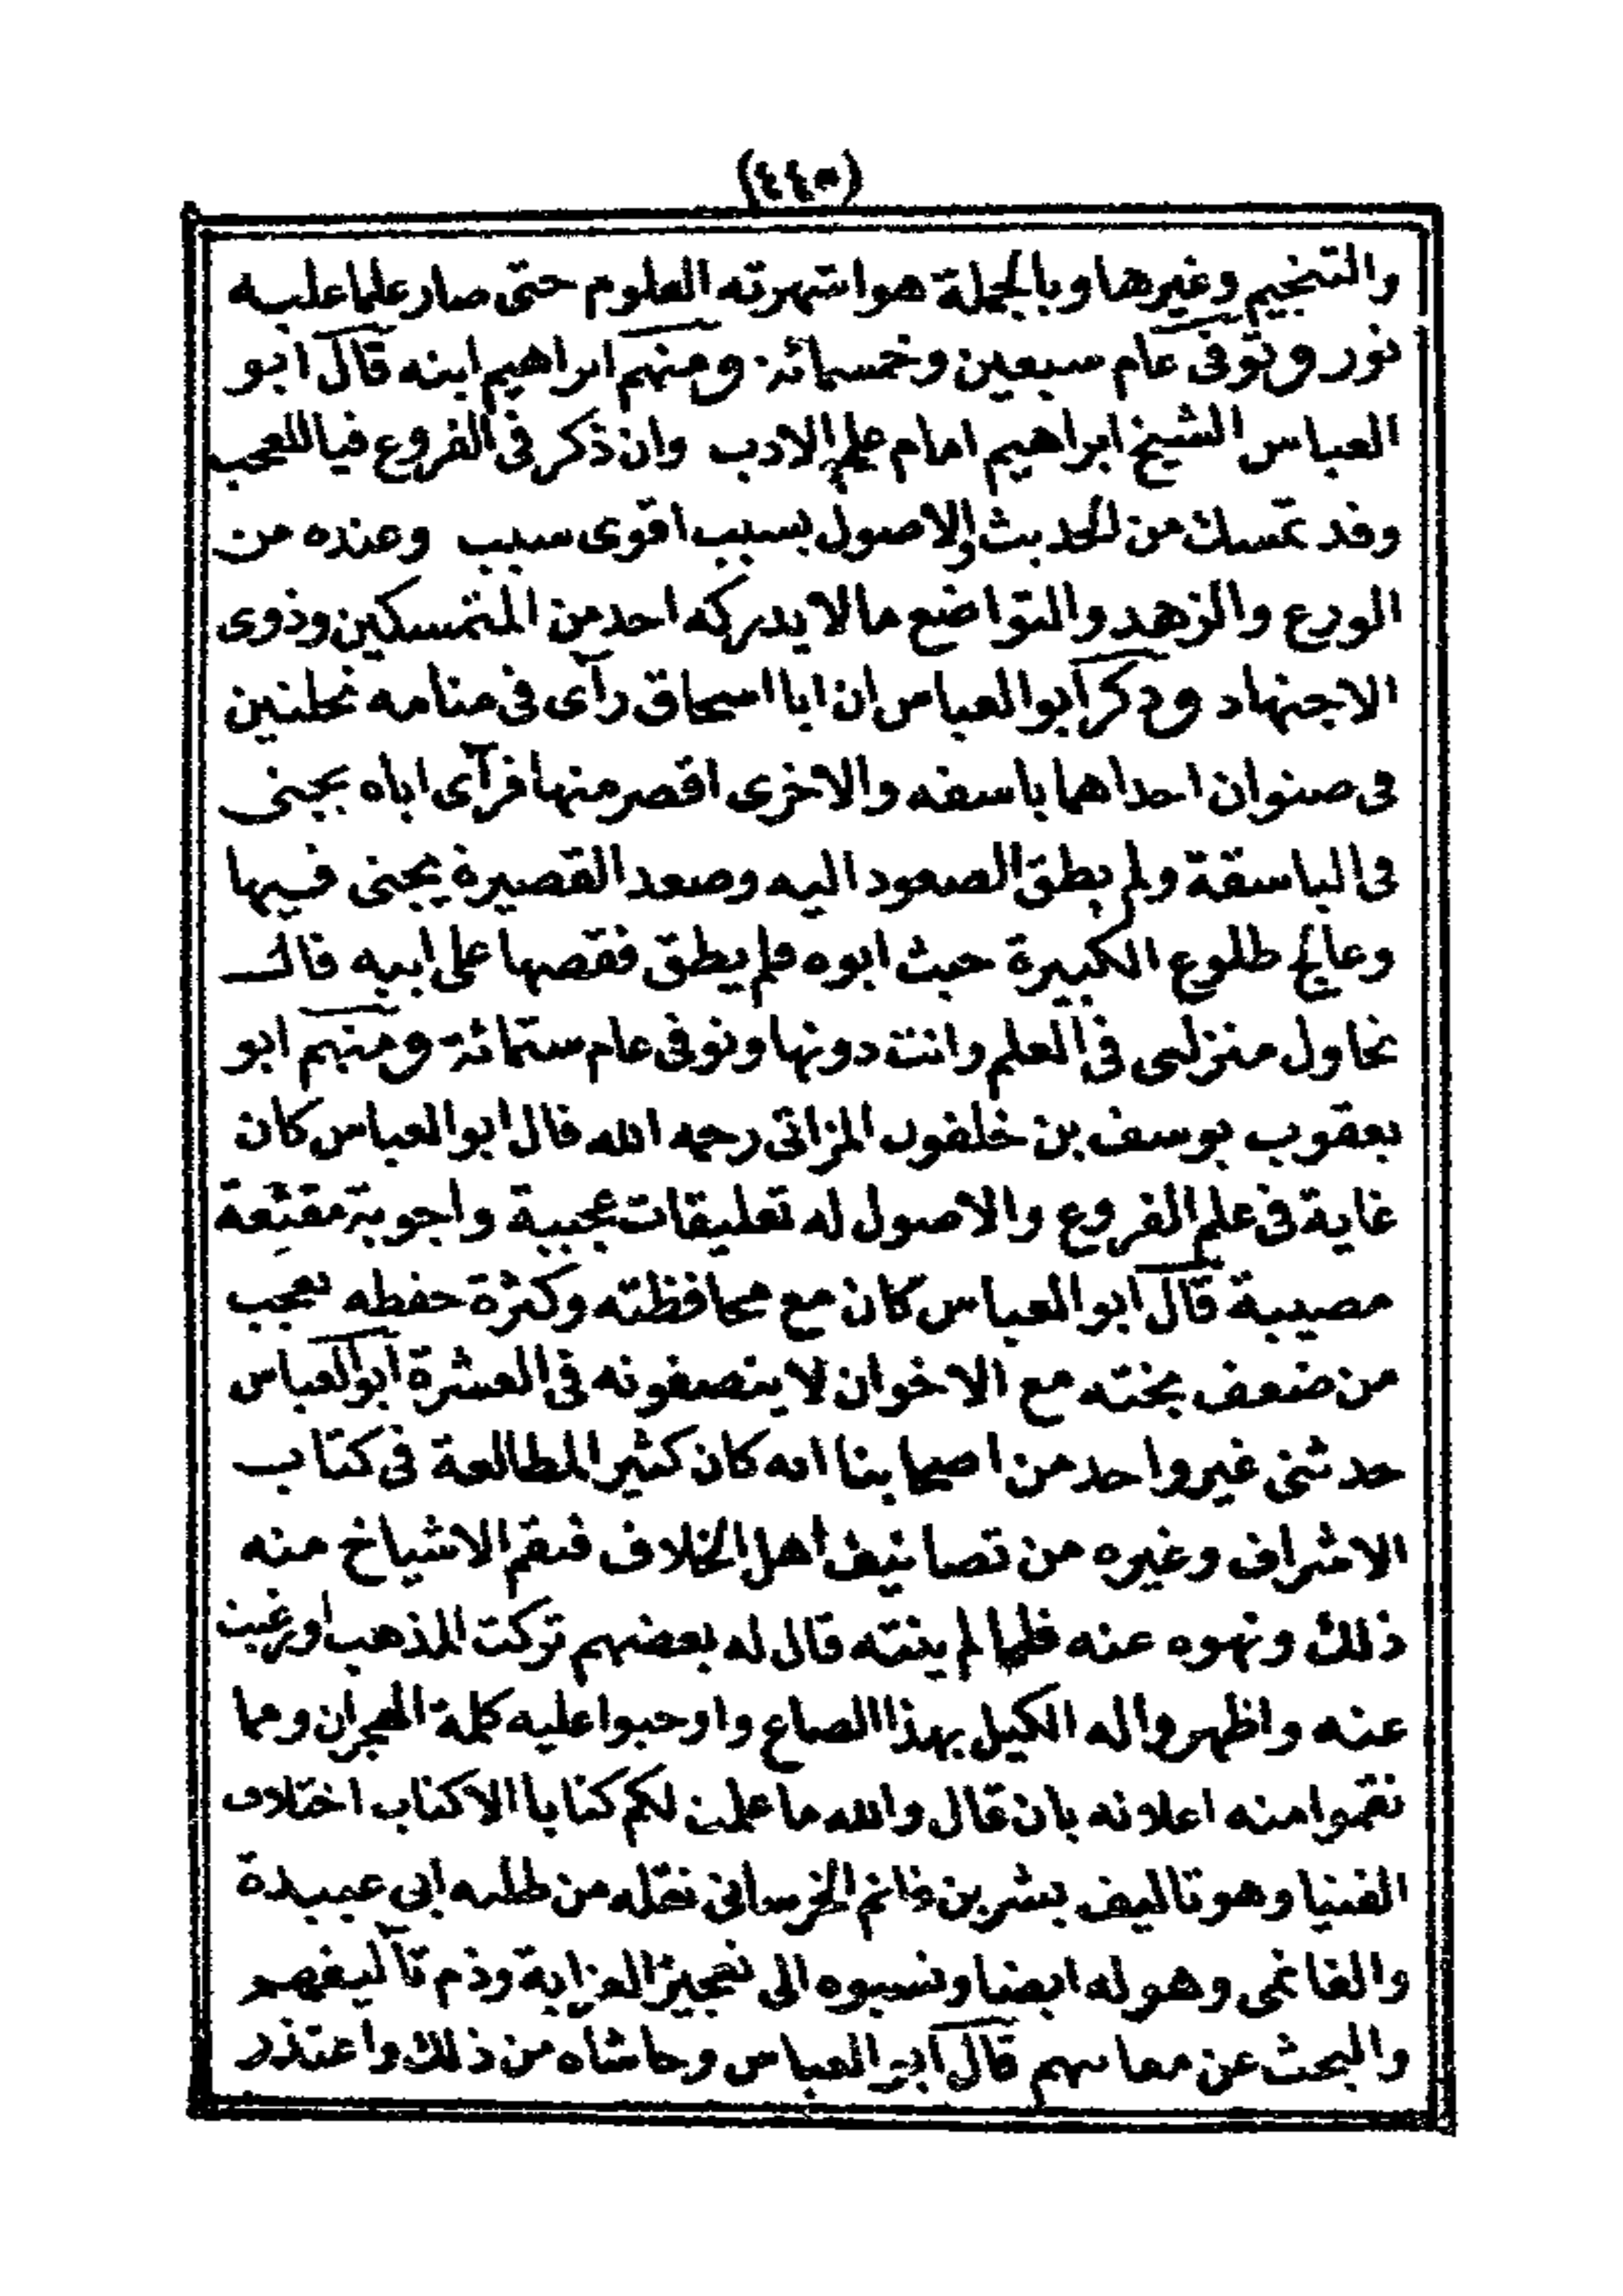 (٤٤٥)
والتنجيم وغيرها وبالجملة هو اشهرته العلوم حتى صار علما عليه
نور وتوفى عام سبعين وخمسمائة ومنهم ابراهيم ابنه قال ابو
العباس الشيخ ابراهيم امام علم الادب وان ذكر فى الفروع فياللعجب
وقد تمسك من الحديث والاصول بسبب اقوى سبب وعنده من
الورع والزهد والتواضع مالا يدركه احد من المتمسكين وذوى
الاجتهاد وذكر ابو العباس ان ابا اسحاق رآى فى منامه نخلتين
فى صنوان احداهما باسقه والاخرى اقصر منها فرآى اباه يجنى
فى الباسقة ولم يطق الصعود اليه وصعد القصيرة يجنى فيها
وعالج طلوع الكبيرة حيث ابوه فلم يطق فقصها على ابيه قال
تحاول منزلتى فى العلم وانت دونها وتوفى عام ستمائة ومنهم ابو
يعقوب يوسف بن خلفون المزاتى رحمه الله قال ابو العباس كان
غاية فى علم الفروع والاصول له تعليقات عجيبة واجوبة مقنعة
مصيبة قال ابو العباس كان مع محافظته وكثرة حفظه تعجب
من ضعف بخته مع الاخوان لا ينصفونه فى العشرة ابو العباس
حدثنى غير واحد من اصحابنا انه كان كثير المطالعة فى كتاب
الاشراف وغيره من تصانيف اهل الخلاف فنقم الاشياخ منه
ذلك ونهوه عنه فلما لم ينته قال له بعضهم تركت المذهب او رغبت
عنه واظهروا له الكيل بهذا الصاع واوجبوا عليه كلمة الهجران ومما
نقموا منه اعلانه بان قال والله ما علمت لكم كتابا الا كتاب اختلاف
الفتيا وهو تاليف بشر بن غانم الخرسانى نقله من طلبه ابى عبيدة
والغانمى وهو له ايضا ونسبوه الى تعجيز العزابة وذم تآليفهم
والبحث عن معايبهم قال ابو العباس وحاشاه من ذلك واعتذر